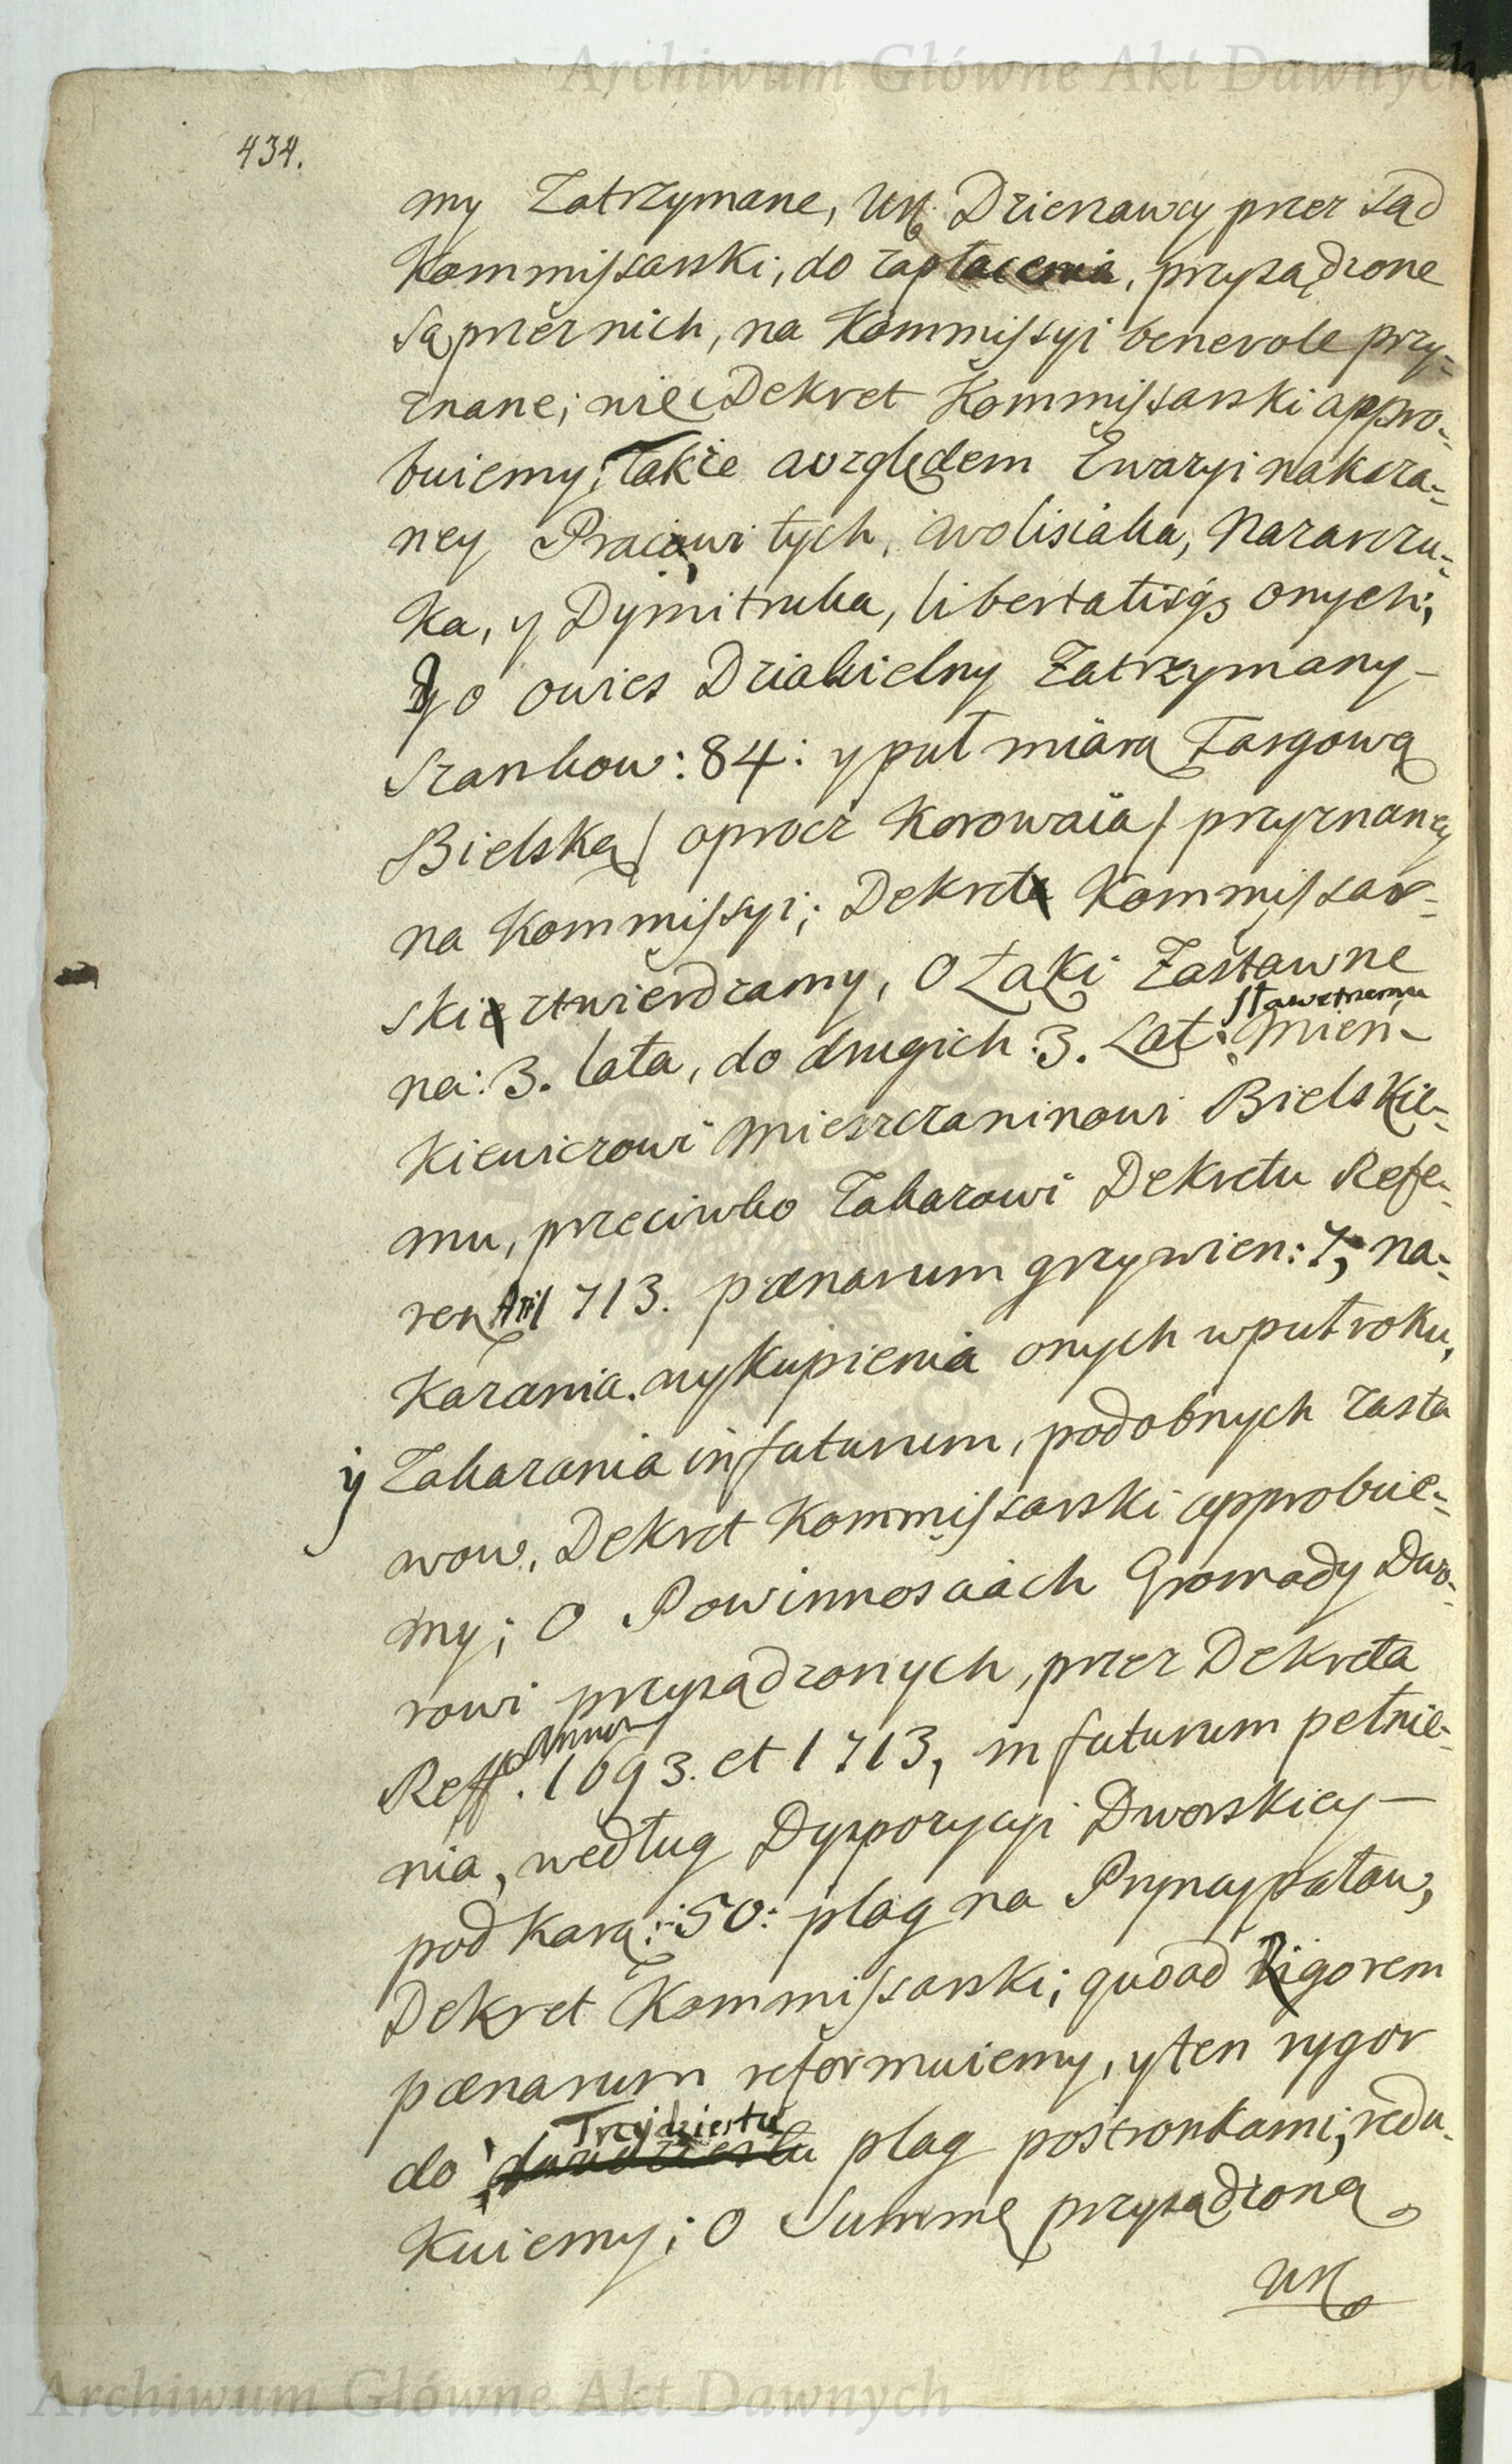 Archiwum Główne Akt Dawnych
434.
my Zatrzymane, Ur. Dzierzawcy przez sąd
Kommissarski, do zapłacenia, przysądzone
są przez nich, na Kommissyi benevole przy-
znane; nie Dekret Kommissarski appro-
buiemy; Także względem Ewazyi nakaza-
ney Pracowitych, Wolisiaka, Nazarczu-
ka, y Dymitruka, libertatisq; onych;
Yo owies Dziakielny Zatrzymany
Szankow: 84: y puł miarą Targową
Bielską / oprocz Korowaia / przyznany
na Kommissyi; Dekret Kommissar-
ski ztwierdzamy, O Łąki Zastawne
sławetnemu
na: 3. lata, do drugich: 3. Lat: Mień-
kiewiczowi Mieszczaninowi Bielskie-
mu, przeciwko Zakazowi Dekretu Refe-
ren 1713. pænarum grzywien: 7, na-
kazania wykupienia onych w puł roku,
y Zakazania in futurum, podobnych zasta
wow, Dekret Kommissarski approbuie-
my; O Powinnosciach Gromady Dwo-
rowi przysądzonych, przez Dekreta
Annor
Reff. 1693. et 1713, in futurum pełnie-
nia, według Dyspozycyi Dworskiey
pod karą: 50: plag na Pryncypałow,
Dekret Kommissarski; quoad Rigorem
pænarum reformuiemy, y ten rygor
Trzydziestu
do dwudziestu plag postronkami, redu-
kuiemy; O Summę przysądzoną
Ur
Archiwum Główne Akt Dawnych